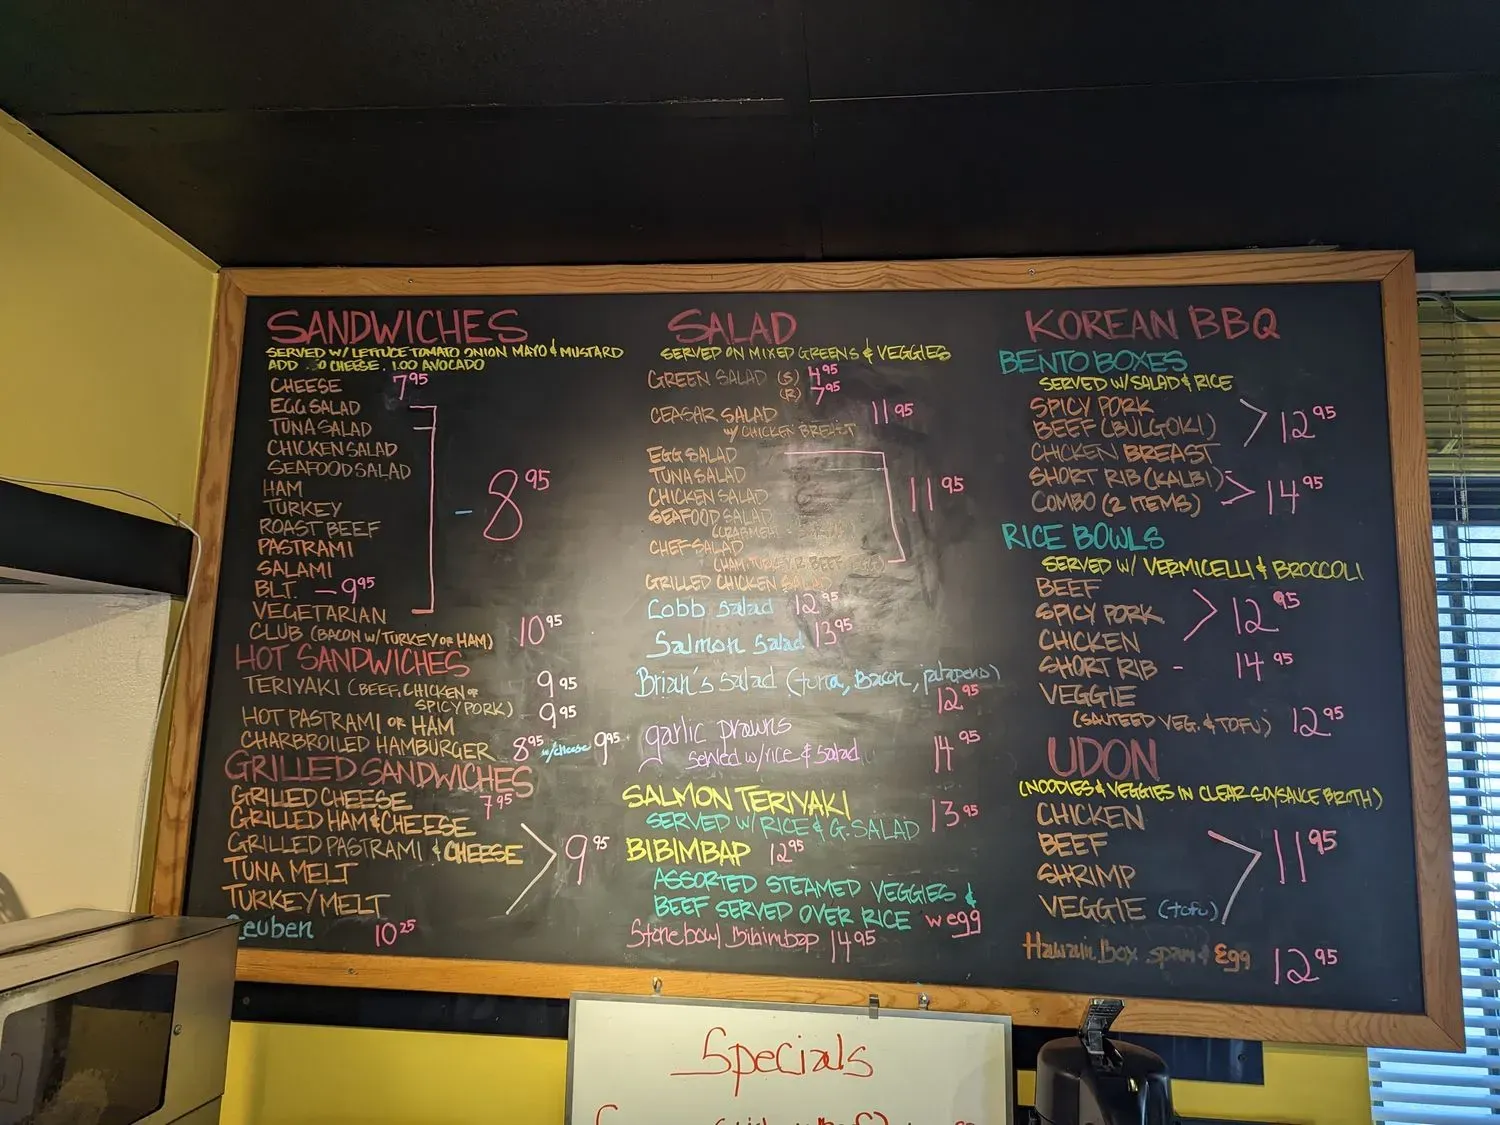 SANDWICHES
SERVED W/ LETTUCE TOMATO ONION MAYO & MUSTARD
ADD .50 CHEESE. 1.00 AVOCADO
CHEESE 7.95
EGG SALAD
TUNA SALAD
CHICKEN SALAD
SEAFOOD SALAD
HAM
TURKEY
ROAST BEEF
- 8.95
PASTRAMI
SALAMI
BLT. - 9.95
VEGETARIAN
CLUB (BACON W/ TURKEY OR HAM) 10.95
HOT SANDWICHES
TERIYAKI (BEEF, CHICKEN OR 9.95
SPICY PORK) - 9.95
HOT PASTRAMI OR HAM
CHARBROILED HAMBURGER 8.95 w/cheese 9.95
GRILLED SANDWICHES
GRILLED CHEESE 7.95
GRILLED HAM & CHEESE
GRILLED PASTRAMI & CHEESE 9.95
TUNA MELT
TURKEY MELT
Reuben 10.25
SALAD
SERVED ON MIXED GREENS & VEGGIES
GREEN SALAD (S) 4.95
(R) 7.95
CEASAR SALAD 11.95
W/ CHICKEN BREAST
EGG SALAD
TUNA SALAD
CHICKEN SALAD 11.95
SEAFOOD SALAD
CHEF SALAD
(HAM, TURKEY, BEEF, EGG)
GRILLED CHICKEN SALAD
Cobb salad 12.95
Salmon Salad 13.95
Brian's Salad (tuna, Bacon, jalapeno)
12.95
garlic prawns 14.95
served w/rice & salad
SALMON TERIYAKI 13.95
SERVED W/ RICE & G. SALAD
BIBIMBAP 12.95
ASSORTED STEAMED VEGGIES &
BEEF SERVED OVER RICE w egg
Stonebowl Bibimbap 14.95
KOREAN BBQ
BENTO BOXES
SERVED W/ SALAD & RICE
SPICY PORK
BEEF (BULGOKI) 12.95
CHICKEN BREAST
SHORT RIB (KALBI) 14.95
COMBO (2 ITEMS)
RICE BOWLS
SERVED W/ VERMICELLI & BROCCOLI
BEEF
SPICY PORK 12.95
CHICKEN
SHORT RIB - 14.95
VEGGIE
(SAUTEED VEG. & TOFU) 12.95
UDON
(NOODLES & VEGGIES IN CLEAR SOYSAUCE BROTH)
CHICKEN
BEEF 11.95
SHRIMP
VEGGIE (tofu)
Hawaiin Box spam & Egg 12.95
Specials